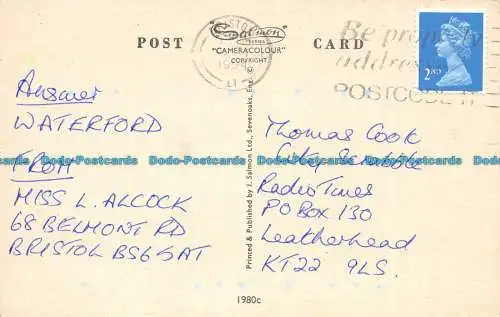 POST CARD
Salmon
"CAMERACOLOUR"
COPYRIGHT
Be properly
addressed
POSTCODE IT
2ND
Answer
WATERFORD
FROM
MISS L. ALCOCK
68 BELMONT RD
BRISTOL BS6 5AT
Printed & Published by J. Salmon Ltd., Sevenoaks, Eng. ©
Thomas Cook
City Scrabble
Radio Times
PO BOX 130
Leatherhead
KT22 9LS.
Dodo-Postcards Dodo-Postcards Dodo-Postcards Dodo-Postcards
1980c